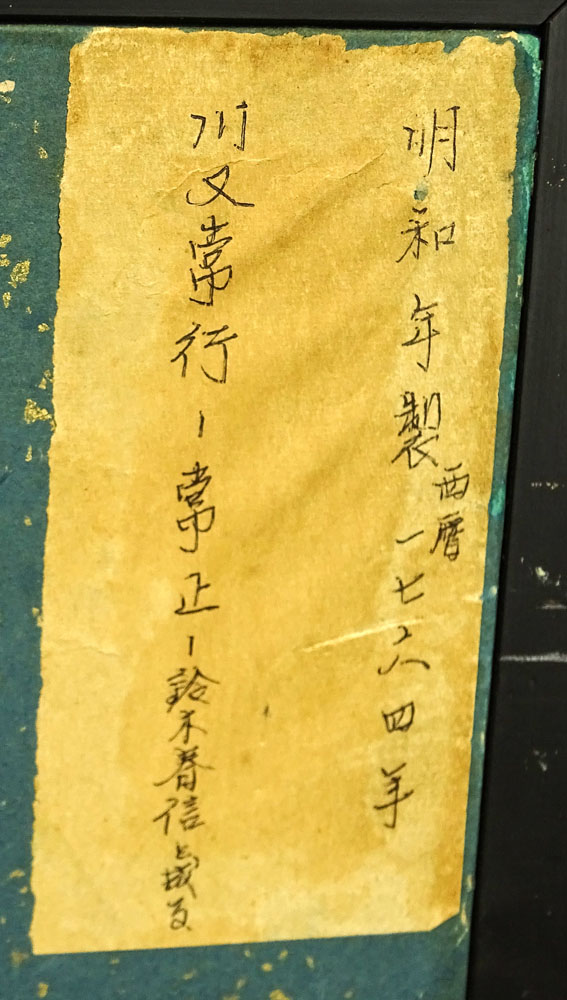 明和年製 西暦一七六四年
川又常行ー常正ー鈴木春信と成る